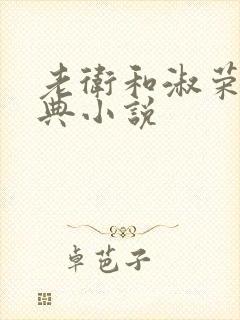 老衛和淑荣
典小说
卓芭子